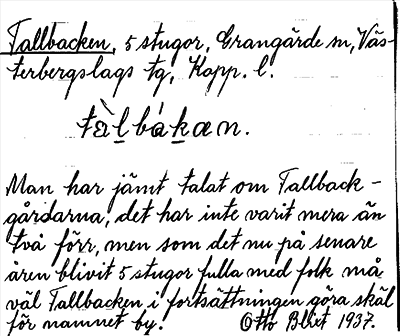 Tallbacken, 5 stugor, Grangärde sn, Väs-
terbergslags tg, Kopp. l.
tàl̠bák̠æn.
Man har jämt talat om Tallback-
gårdarna, det har inte varit mera än
två förr, men som det nu på senare
åren blivit 5 stugor fulla med folk må
väl Tallbacken i fortsättningen göra skäl
för namnet by. Otto Blixt 1937.